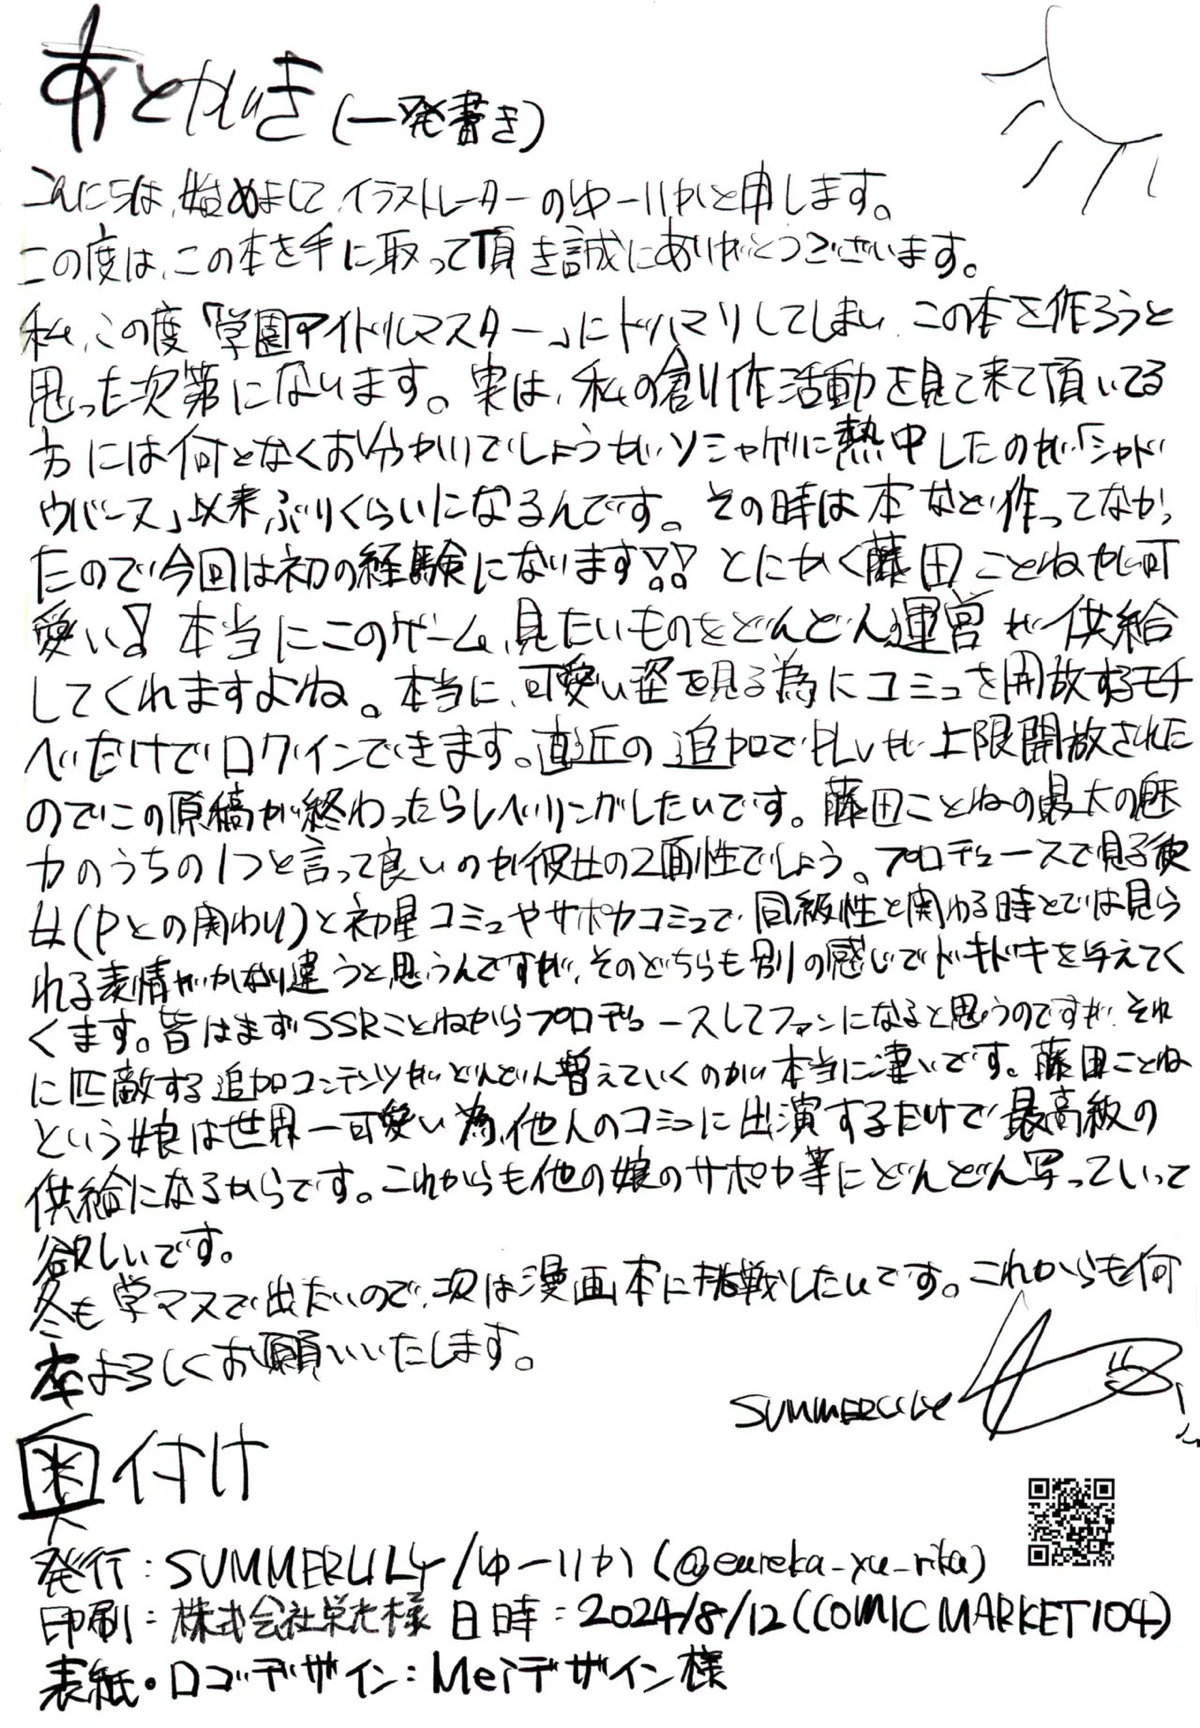 あとがき(一発書き)
こんにちは、始めまして イラストレーターのゆーりかと申します。
この度は、この本を手に取って頂き誠にありがとうございます。
私、この度「学園アイドルマスター」にドハマりしてしまい、この本を作ろうと
思った次第になります。実は、私の創作活動を見て来て頂いてる
方には何となくお分かりでしょうが、ソシャゲに熱中したのが「シャド
ウバース」以来ぶりくらいになるんです。その時は本など作ってなかっ
たので今回は初の経験になります!! とにかく藤田ことねが可
愛い! 本当にこのゲーム、見たいものをどんどん運営が供給
してくれますよね。本当に、可愛い姿を見る為にコミュを開放するモチ
べだけでログインできます。直近の追加でPLvが上限開放された
のでこの原稿が終わったらレベリングしたいです。藤田ことねの最大の魅
力のうちの1つと言って良いのが彼女の2面性でしょう。プロデュースで見る彼
女(Pとの関わり)と初星コミュやサポカコミュで、同級性と関わる時とでは見ら
れる表情がかなり違うと思うんですが、そのどちらも別の感じでドキドキを与えてく
くます。皆はまずSSRことねからプロデュースしてファンになると思うのですが、それ
に匹敵する追加コンテンツがどんどん増えていくのが本当に凄いです。藤田ことね
という娘は世界一可愛い為、他人のコミュに出演するだけで最高級の
供給になるからです。これからも他の娘のサポカ等にどんどん写っていって
欲しいです。
冬も学マスで出たいので、次は漫画本に挑戦したいです。これからも何
卒よろしくお願いいたします。
SUMMERLILY
奥付け
発行:SUMMERLILY/ゆーりか(@eureka_yu_rika)
印刷:株式会社栄光様 日時:2024/8/12(COMIC MARKET104)
表紙・ロゴデザイン:Meiデザイン様